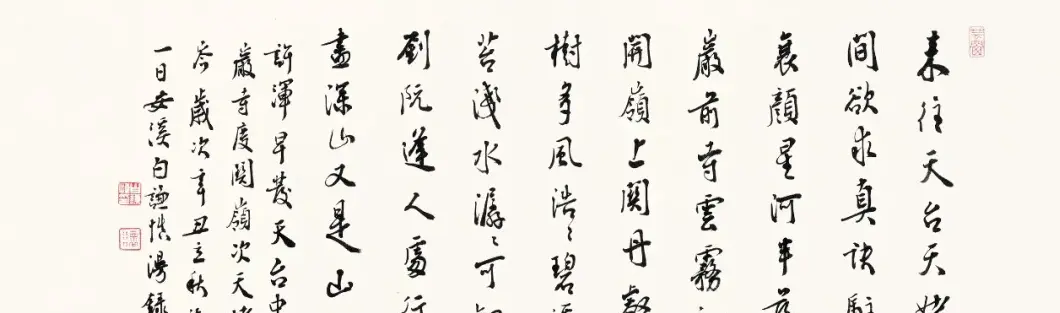 来往天台天姥
間欲求真訣駐
衰顏星河半落
巖前寺雲霧
開嶺上關丹壑
樹多風浩〻碧
苔淺水潺〻可
劉阮逢人處行
盡深山又是山
許渾早發天台中
巖寺度關嶺次天
岑歲次辛丑立秋
一日安溪白謙慎漫錄